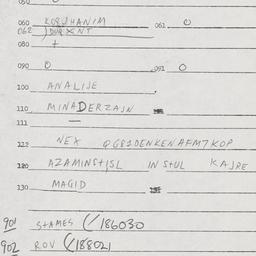 050
060 KOBJHANIM 061 O
062 )DURXNT
080 +
090 O 091 O
100 ANALIJE
110 MINADERZAJN
111 —
NEX QG81DENKENAFM7KOP
120 AZAMINST|SL IN STUL KAJRE
130 MAGID
901 STAMES (/186030
902 ROV (/188021